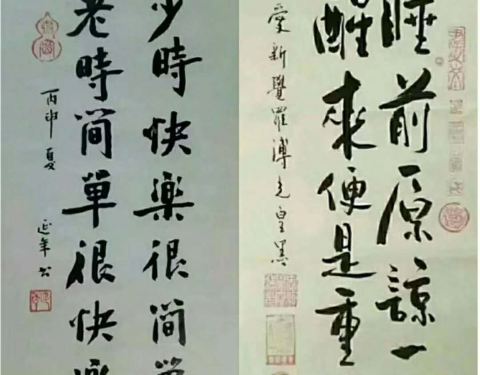 少時快樂很簡單
老時簡單很快樂
丙申夏 延年书
睡前原諒一
醒來便是重
愛新覺羅溥